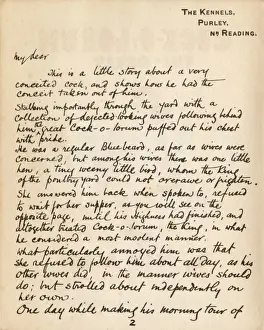 THE KENNELS,
PURLEY,
NR READING.
My dear
This is a little story about a very
conceited cock, and shows how he had the
conceit taken out of him.
Stalking importantly through the yard with a
collection of dejected looking wives following behind
him the great Cock-o-lorum puffed out his chest
with pride.
He was a regular Bluebeard, as far as wives were
concerned, but among his wives there was one little
hen, a tiny weeny little bird, whom the King
of the poultry yard could not overawe or frighten.
She answered him back when spoken to, refused
to wait for her supper, as you will see on the
opposite page, until his Highness had finished, and
altogether treated Cock-o-lorum, the king, in what
he considered a most insolent manner.
What particularly annoyed him was that
she refused to follow him about all day, as his
other wives did, in the manner wives should
do; but strolled about independently on
her own.
One day while making his morning tour of
2